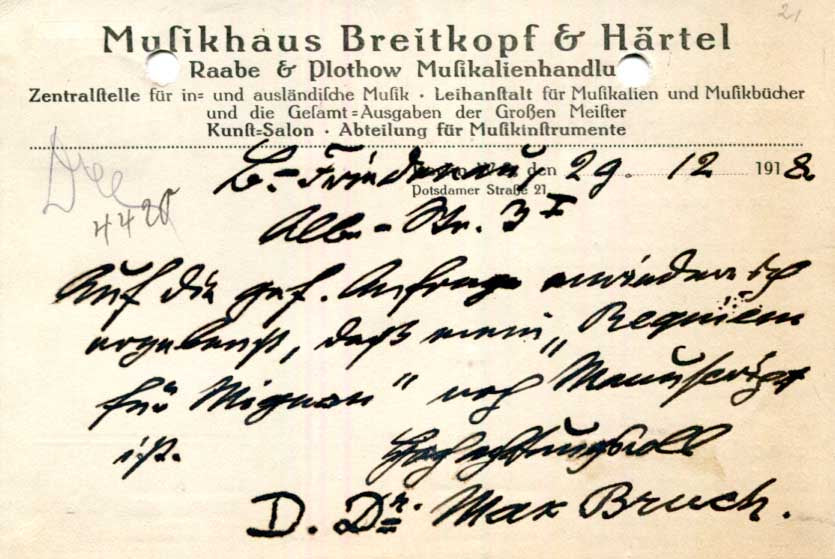 21
Muſikhaus Breitkopf & Härtel
Raabe & Plothow Muſikalienhandlu
Zentralſtelle für in= und ausländiſche Muſik · Leihanſtalt für Muſikalien und Muſikbücher
und die Geſamt=Ausgaben der Großen Meiſter
Kunſt=Salon · Abteilung für Muſikinſtrumente
B.-Friedenau den 29. 12 1918.
Potsdamer Straße 21
4420
Albe-Str. 3 I
Auf die gef. Anfrage erwiedere ich
ergebenst, daß mein „Requiem
für Mignon“ noch Manuscript
ist. Hochachtungsvoll
D. Dr. Max Bruch.